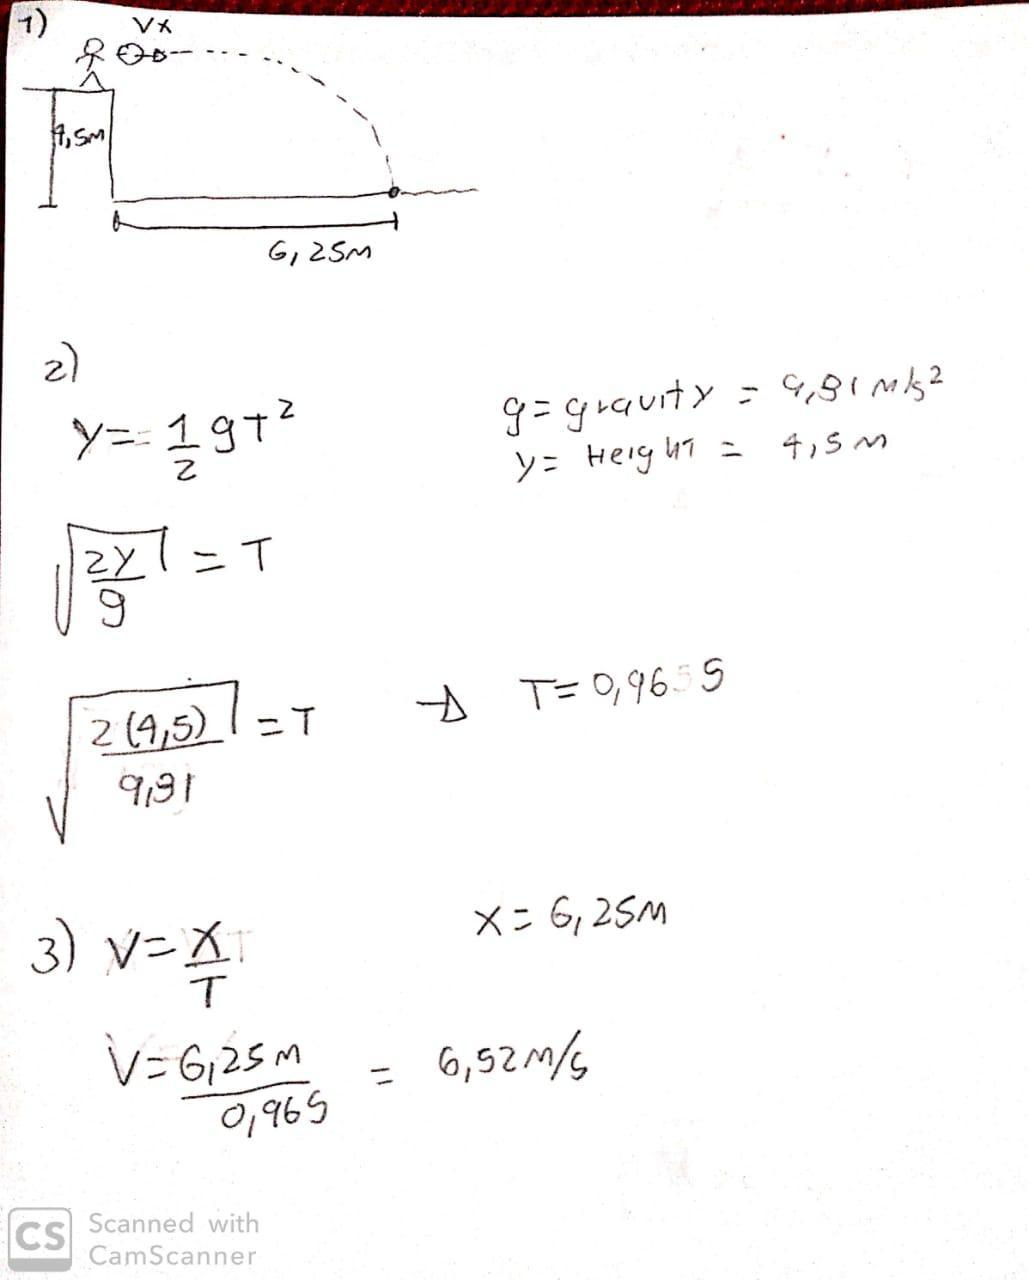 1)
Vx
4,5m
6,25m
2)
y = 1/2 gT²
g = gravity = 9,81 m/s²
y = Height = 4,5 m
√(2y/g) = T
√(2(4,5)/9,81) = T → T = 0,96 s
3) V = X/T
X = 6,25m
V = 6,25m/0,96s = 6,52 m/s
CS Scanned with
CamScanner